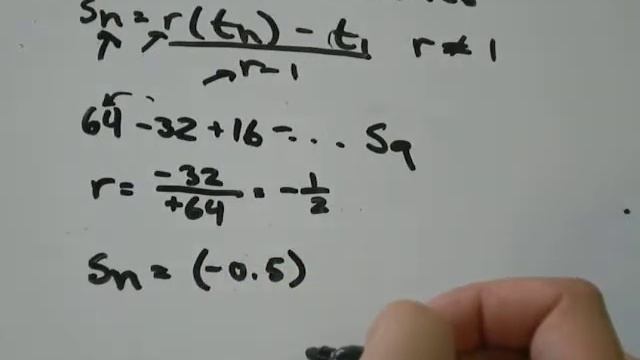 Sn = r(tn) - t1 / r-1 r ≠ 1
64 - 32 + 16 - ... S9
r = -32/+64 = -1/2
Sn = (-0.5)